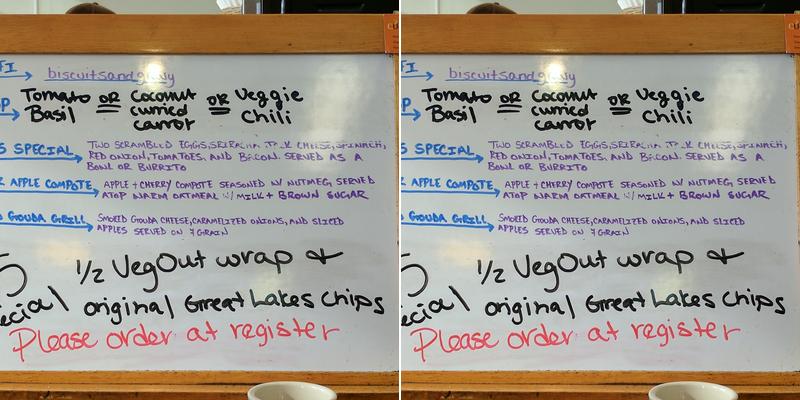 FI → biscuitsandgravy
Tomato Basil OR Coconut curried carrot OR Veggie Chili
S SPECIAL → TWO SCRAMBLED EGGS, SRIRACHA, CHEESE, SPINACH,
RED ONION, TOMATOES, AND BACON. SERVED AS A
BOWL OR BURRITO
APPLE COMPOTE → APPLE + CHERRY COMPOTE SEASONED W/ NUTMEG, SERVED
ATOP WARM OATMEAL W/ MILK + BROWN SUGAR
GOUDA GRILL → SMOKED GOUDA CHEESE, CARAMELIZED ONIONS, AND SLICED
APPLES SERVED ON 7 GRAIN
5 1/2 VegOut wrap &
ecial original Great Lakes chips
Please order at register
FI → biscuitsandgravy
Tomato Basil OR Coconut curried carrot OR Veggie Chili
S SPECIAL → TWO SCRAMBLED EGGS, SRIRACHA, CHEESE, SPINACH,
RED ONION, TOMATOES, AND BACON. SERVED AS A
BOWL OR BURRITO
APPLE COMPOTE → APPLE + CHERRY COMPOTE SEASONED W/ NUTMEG, SERVED
ATOP WARM OATMEAL W/ MILK + BROWN SUGAR
GOUDA GRILL → SMOKED GOUDA CHEESE, CARAMELIZED ONIONS, AND SLICED
APPLES SERVED ON 7 GRAIN
5 1/2 VegOut wrap &
ecial original Great Lakes chips
Please order at register